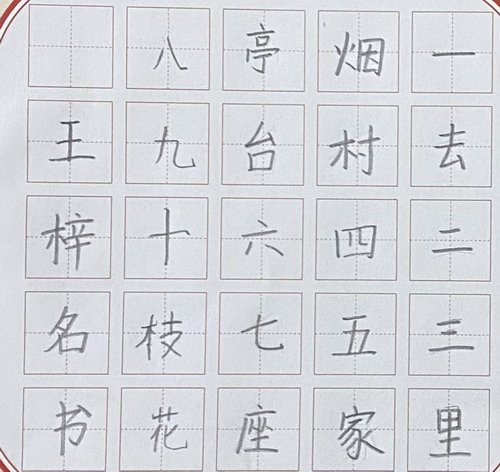 一去二三里
烟村四五家
亭台六七座
八九十枝花
王梓名书